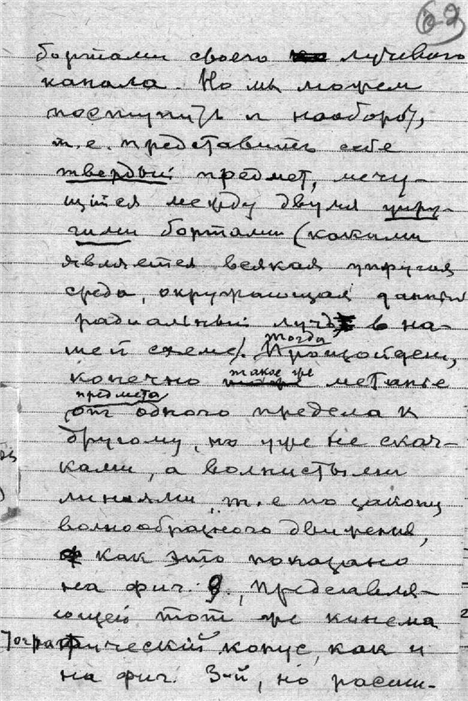 62
бортами своего лучевого
канала. Но мы можем
поступить и наоборот,
т.е. представить себе
твердый предмет, мечу-
щійся между двумя упру-
гими бортами (какими
является всякая упругая
среда, окружающая данный
радиальный луч в на-
шей схеме). Тогда Произойдет,
конечно такое же метанье
предмета от одного предела к
другому, но уже не скач-
ками, а волнистыми
линиями, т.е по закону
волнообразного движения,
как это показано
на фиг. 9., представля-
ющей тот же кинема
тографический конус, как и
на фиг. 3-й, но расши-